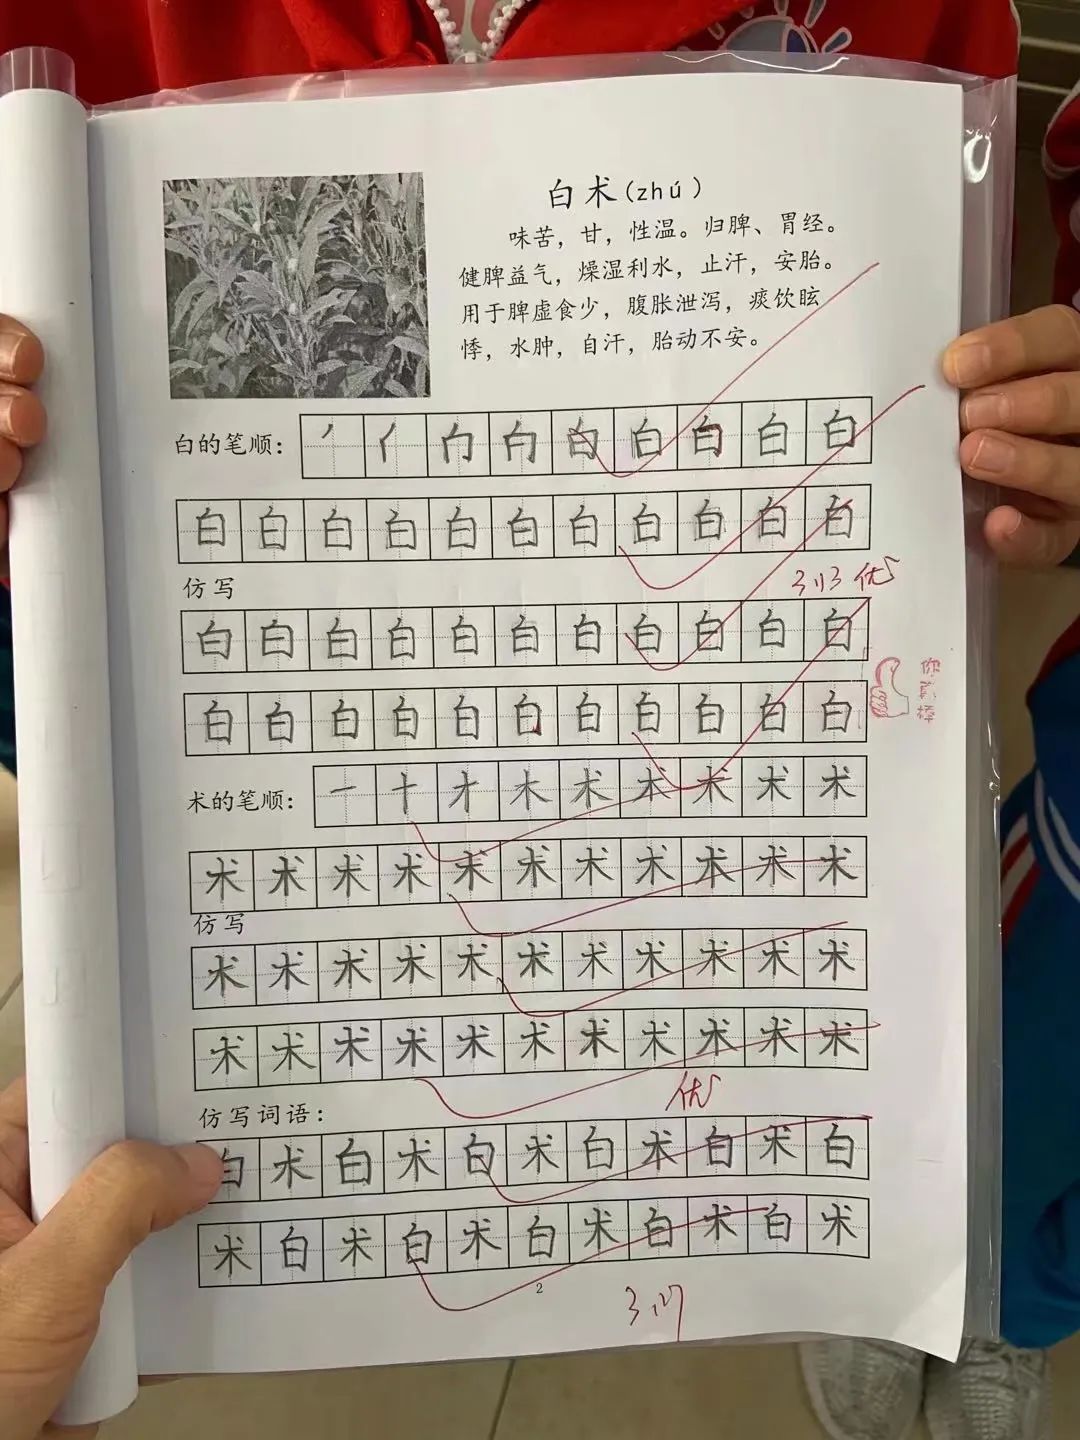 白术(zhú)
味苦，甘，性温。归脾、胃经。
健脾益气，燥湿利水，止汗，安胎。
用于脾虚食少，腹胀泄泻，痰饮眩
悸，水肿，自汗，胎动不安。
白的笔顺：丿亻白白白白白
白白白白白白白白白白白
仿写
3.13 优
白白白白白白白白白白白
你真棒
白白白白白白白白白白白
术的笔顺：一十才木术术术术术
术术术术术术术术术术术
仿写
术术术术术术术术术术术
术术术术术术术术术术术
优
仿写词语：
白术白术白术白术白术白
术白术白术白术白术白术
2